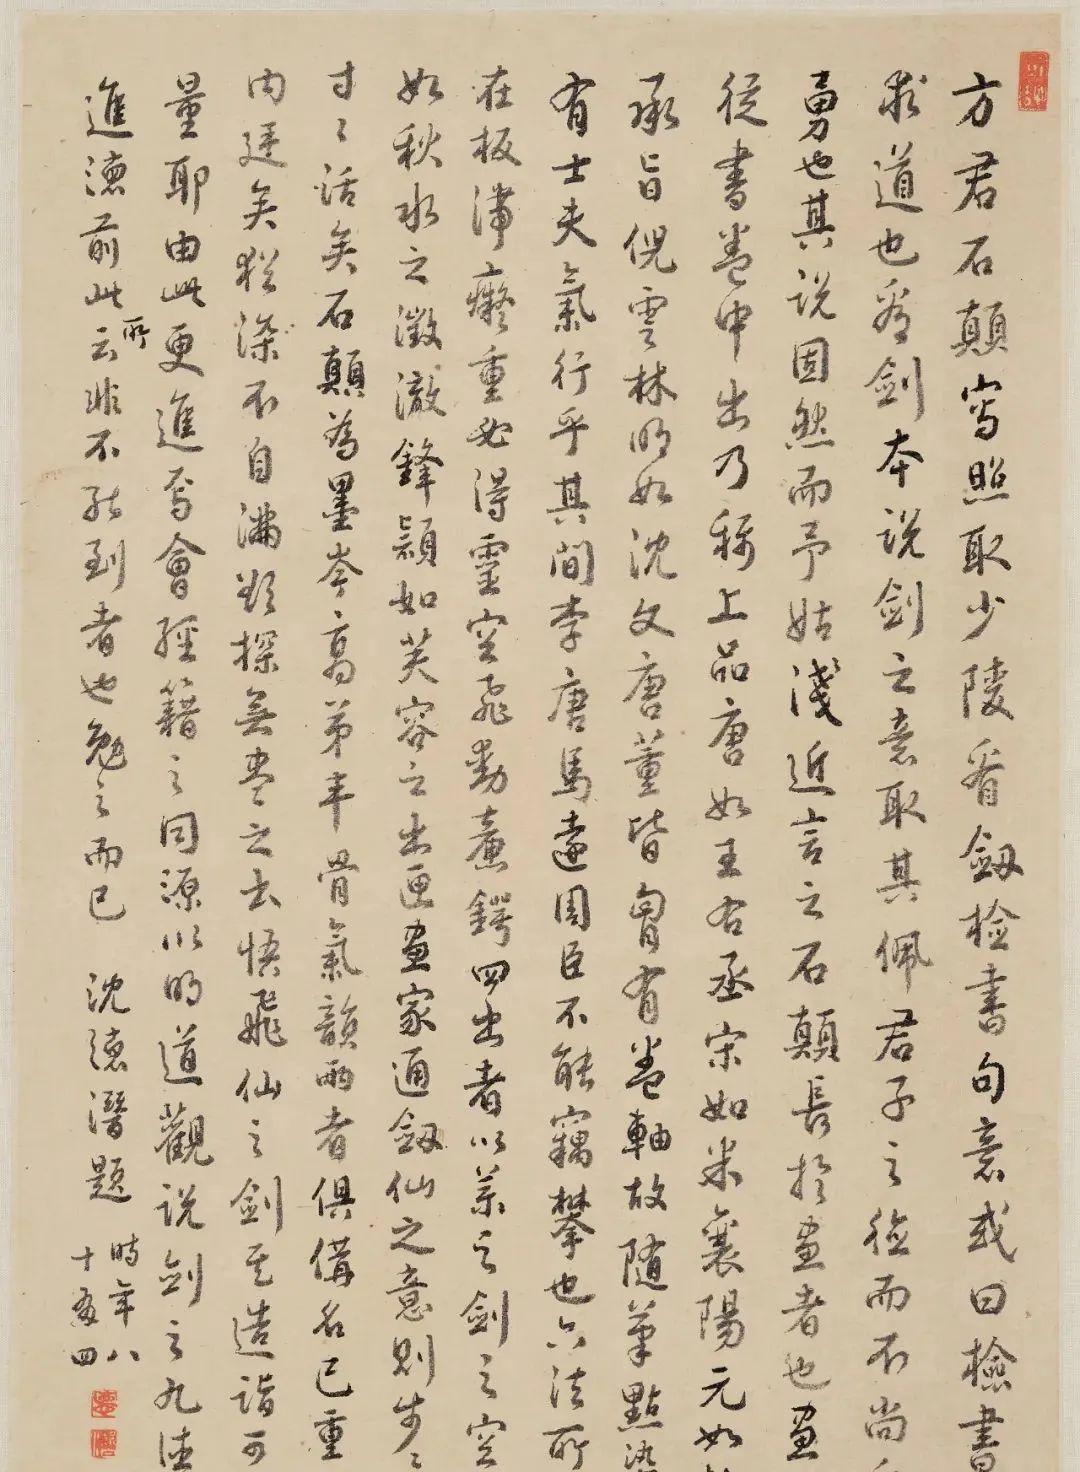 方君石顛寫照取少陵看劔檢書句意或曰檢書
求道也看劍本說劍之意取其佩君子之德而不尚
勇也其說固然而予姑淺近言之石顛長於畫者也畫
從書卷中出乃稱上品唐如王右丞宋如米襄陽元如
承旨倪雲林明如沈文唐董皆胷有卷軸故隨筆點染
有士夫氣行乎其間李唐馬遠周臣不能竊攀也六法所
在板滯癡重必得靈空飛動鋩鍔四出者以藥之劍之空
如秋水之澂澈鋒穎如芙容之出匣畫家通劔仙之意則步〻
寸〻活矣石顛為墨岑高弟丰骨氣韻兩者俱備名已重
內廷矣猶深不自滿欿探無盡之書悟飛仙之劍其造詣可
量耶由此更進焉會經籍之同源以明道觀說劍之九法
進德前此所云非不能到者也勉之而已 沈德潛題
時年八
十有四